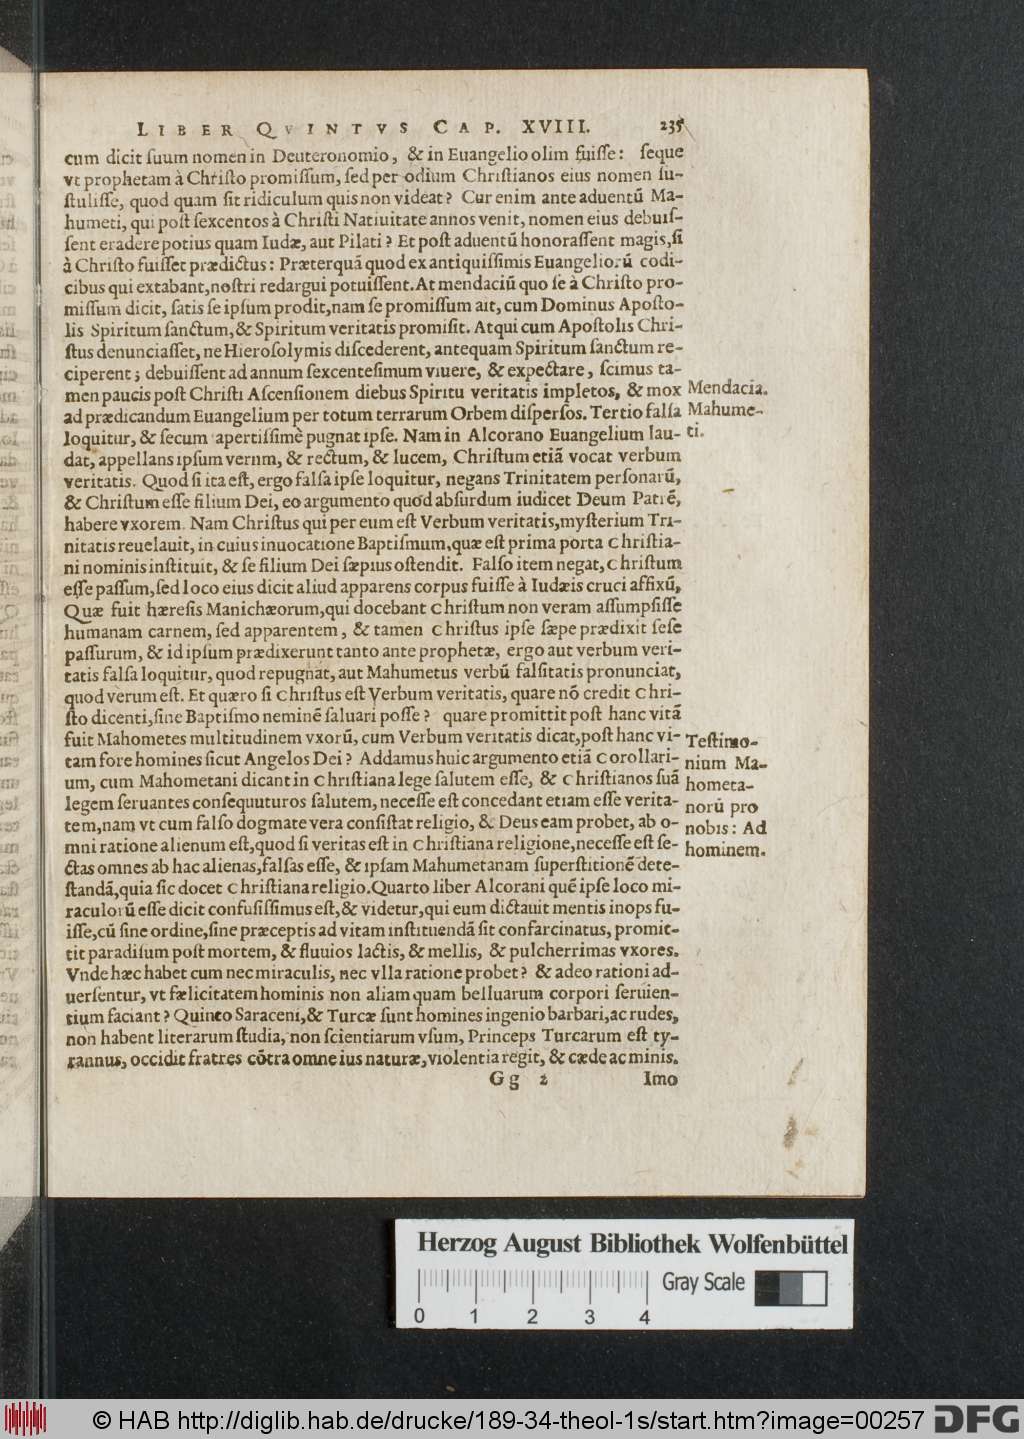 LIBER QVINTVS CAP. XVIII. 235
cum dicit ſuum nomen in Deuteronomio, & in Euangelio olim fuiſſe: ſeque
vt prophetam à Chriſto promiſſum, ſed per odium Chriſtianos eius nomen ſu-
ſtuliſſe, quod quam ſit ridiculum quis non videat? Cur enim ante aduentū Ma-
humeti, qui poſt ſexcentos à Chriſti Natiuitate annos venit, nomen eius debuiſ-
ſent eradere potius quam Iudæ, aut Pilati? Et poſt aduentū honoraſſent magis, ſi
à Chriſto fuiſſet prædictus: Præterquā quod ex antiquiſſimis Euangeliorū codi-
cibus qui extabant, noſtri redargui potuiſſent. At mendaciū quo ſe à Chriſto pro-
miſſum dicit, ſatis ſe ipſum prodit, nam ſe promiſſum ait, cum Dominus Apoſto-
lis Spiritum ſanctum, & Spiritum veritatis promiſit. Atqui cum Apoſtolis Chri-
ſtus denunciaſſet, ne Hieroſolymis diſcederent, antequam Spiritum ſanctum re-
ciperent; debuiſſent ad annum ſexcenteſimum viuere, & expectare, ſcimus ta-
men paucis poſt Chriſti Aſcenſionem diebus Spiritu veritatis impletos, & mox
ad prædicandum Euangelium per totum terrarum Orbem diſperſos. Tertio falſa
loquitur, & ſecum apertiſſimè pugnat ipſe. Nam in Alcorano Euangelium lau-
dat, appellans ipſum vernm, & rectum, & lucem, Chriſtum etiā vocat verbum
veritatis. Quod ſi ita eſt, ergo falſa ipſe loquitur, negans Trinitatem perſonarū,
& Chriſtum eſſe filium Dei, eo argumento quod abſurdum iudicet Deum Patrē,
habere vxorem. Nam Chriſtus qui per eum eſt Verbum veritatis, myſterium Tri-
nitatis reuelauit, in cuius inuocatione Baptiſmum, quæ eſt prima porta Chriſtia-
ni nominis inſtituit, & ſe filium Dei ſæpius oſtendit. Falſo item negat, Chriſtum
eſſe paſſum, ſed loco eius dicit aliud apparens corpus fuiſſe à Iudæis cruci affixū,
Quæ fuit hæreſis Manichæorum, qui docebant Chriſtum non veram aſſumpſiſſe
humanam carnem, ſed apparentem, & tamen Chriſtus ipſe ſæpe prædixit ſeſe
paſſurum, & id ipſum prædixerunt tanto ante prophetæ, ergo aut verbum veri-
tatis falſa loquitur, quod repugnat, aut Mahumetus verbū falſitatis pronunciat,
quod verum eſt. Et quæro ſi Chriſtus eſt Verbum veritatis, quare nō credit Chri-
ſto dicenti, ſine Baptiſmo neminē ſaluari poſſe? quare promittit poſt hanc vitā
fuit Mahometes multitudinem vxorū, cum Verbum veritatis dicat, poſt hanc vi-
tam fore homines ſicut Angelos Dei? Addamus huic argumento etiā Corollari-
um, cum Mahometani dicant in Chriſtiana lege ſalutem eſſe, & Chriſtianos ſuā
legem ſeruantes conſequuturos ſalutem, neceſſe eſt concedant etiam eſſe verita-
tem, nam vt cum falſo dogmate vera conſiſtat religio, & Deus eam probet, ab o-
mni ratione alienum eſt, quod ſi veritas eſt in Chriſtiana religione, neceſſe eſt ſe-
ctas omnes ab hac alienas, falſas eſſe, & ipſam Mahumetanam ſuperſtitionē dete-
ſtandā, quia ſic docet Chriſtiana religio. Quarto liber Alcorani quē ipſe loco mi-
raculorū eſſe dicit confuſiſſimus eſt, & videtur, qui eum dictauit mentis inops fu-
iſſe, cū ſine ordine, ſine præceptis ad vitam inſtituendā ſit confarcinatus, promit-
tit paradiſum poſt mortem, & fluuios lactis, & mellis, & pulcherrimas vxores.
Vnde hæc habet cum nec miraculis, nec vlla ratione probet? & adeo rationi ad-
uerſentur, vt fælicitatem hominis non aliam quam belluarum corpori ſeruien-
tium faciant? Quinto Saraceni, & Turcæ ſunt homines ingenio barbari, ac rudes,
non habent literarum ſtudia, non ſcientiarum vſum, Princeps Turcarum eſt ty-
rannus, occidit fratres cōtra omne ius naturæ, violentia regit, & cæde ac minis.
Gg 2 Imo
Mendacia.
Mahume-
ti.
Teſtimo-
nium Ma-
hometa-
norū pro
nobis: Ad
hominem.
Herzog August Bibliothek Wolfenbüttel
Gray Scale
0 1 2 3 4
© HAB http://diglib.hab.de/drucke/189-34-theol-1s/start.htm?image=00257 DFG